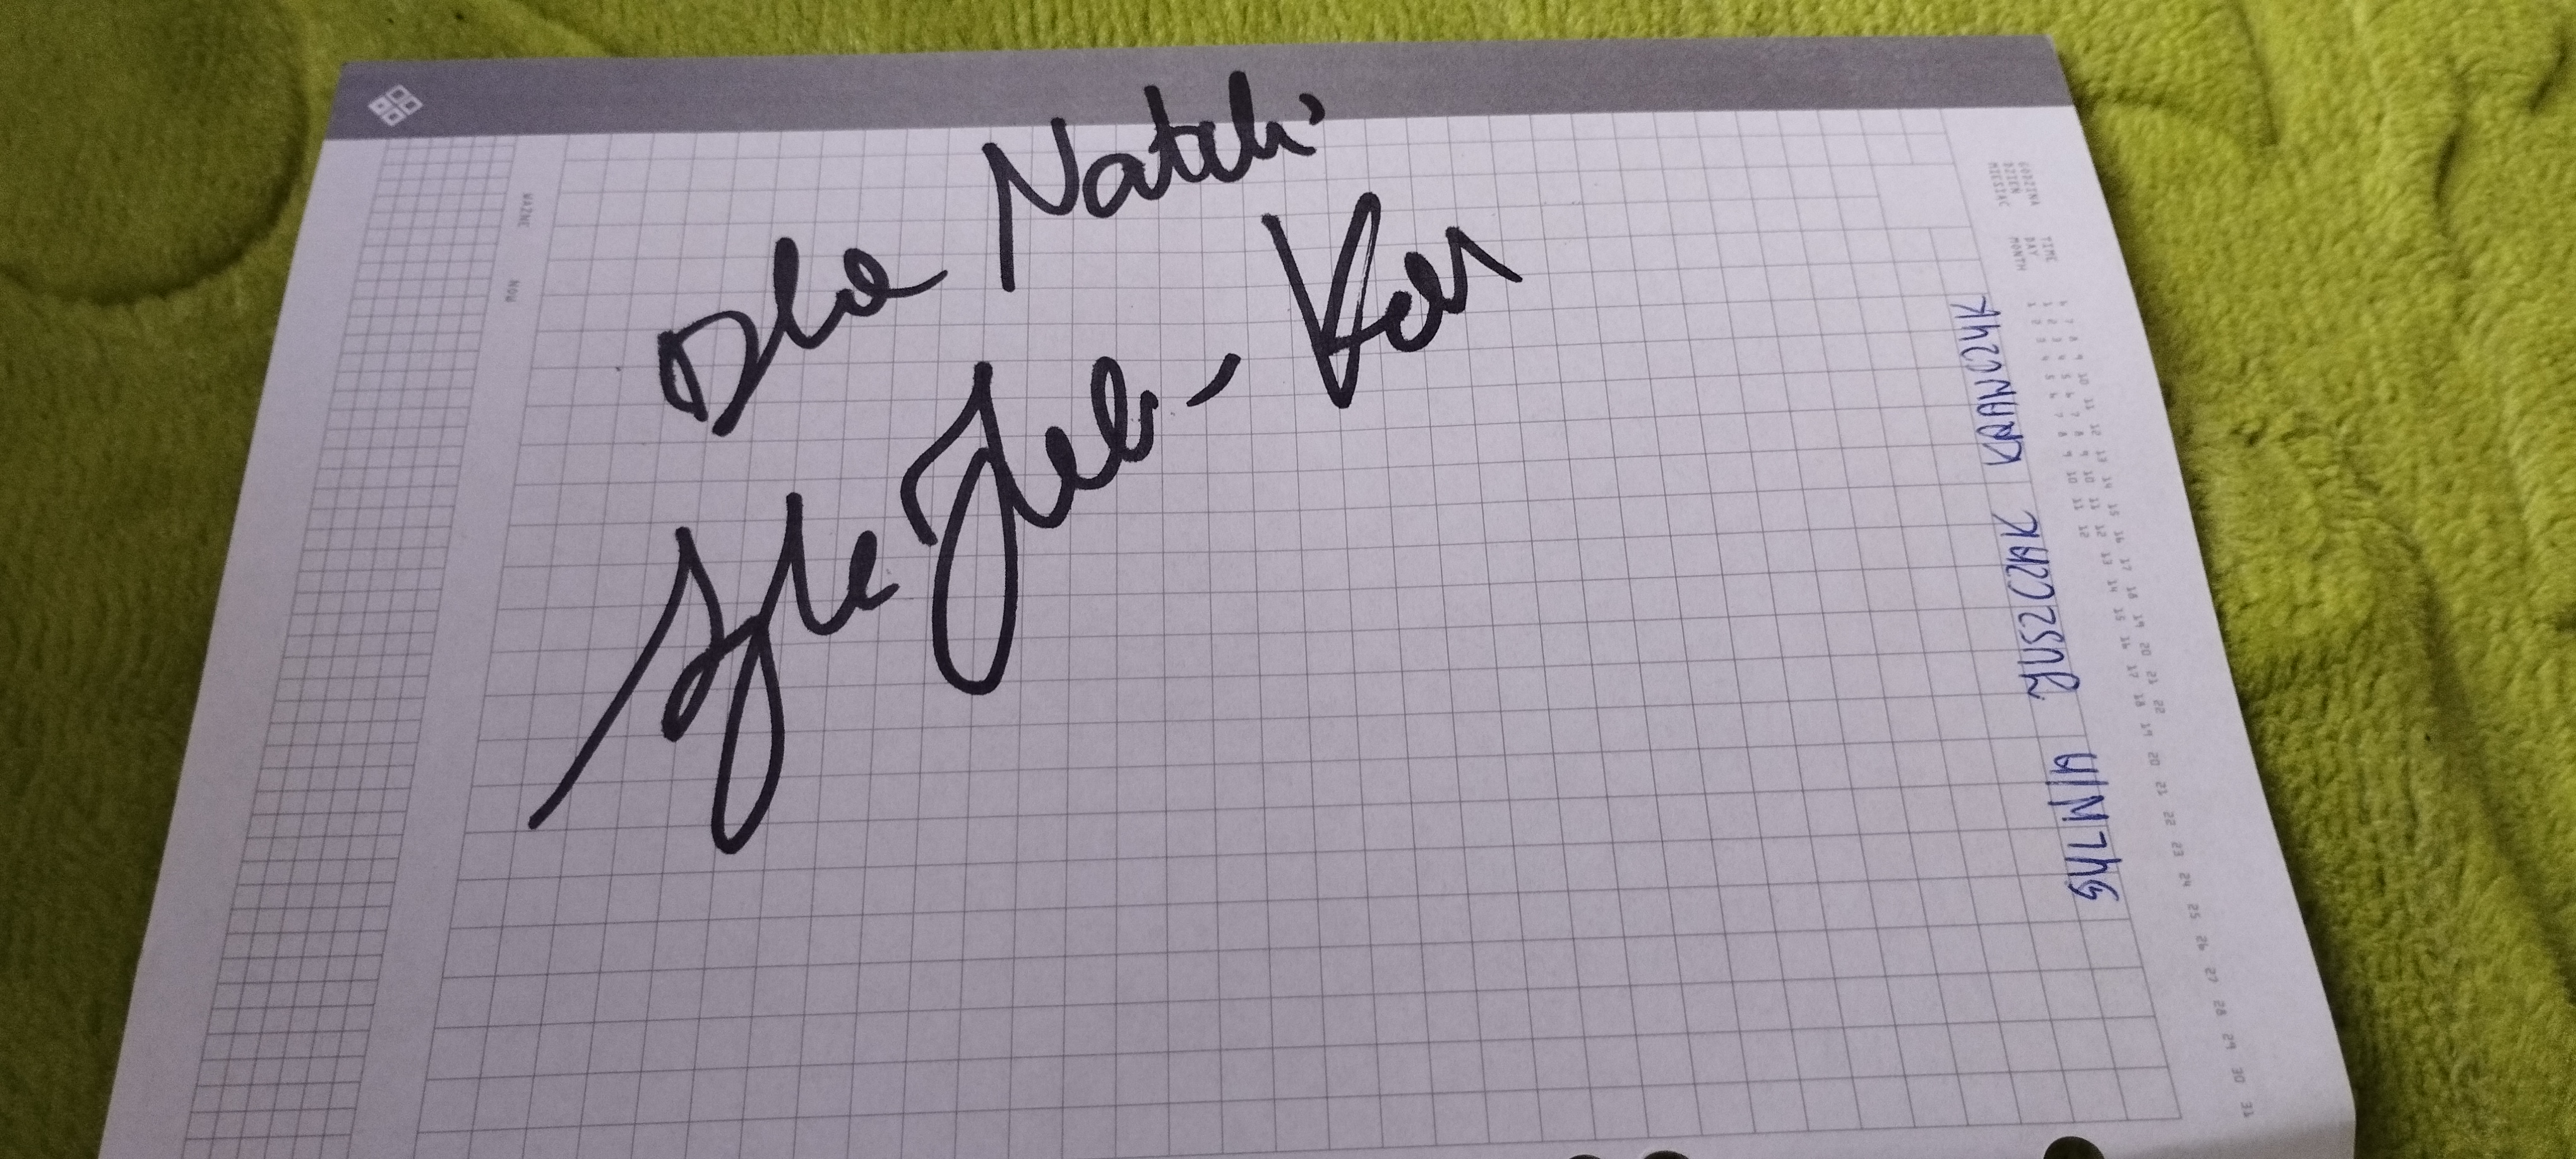 Dla Natali
SYLWIA JUSZCZAK KRAWCZYK
WAŻNE NOW
GODZINA TIME 6 7 8 9 10 11 12 13 14 15 16 17 18 19 20 21 22
DZIEŃ DAY 1 2 3 4 5 6 7 8 9 10 11 12 13 14 15 16 17 18 19 20 21 22 23 24 25 26 27 28 29 30 31
MIESIĄC MONTH 1 2 3 4 5 6 7 8 9 10 11 12